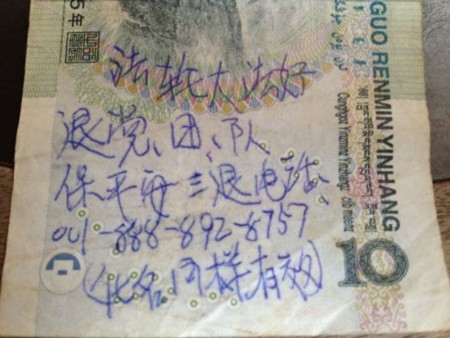 法轮大法好
退党、团、队
保平安三退电话
001-888-892-8757
(化名同样有效)
5年
GUO RENMIN YINHANG
10